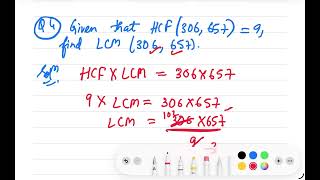 Q4 Given that HCF (306, 657) = 9,
find LCM (306, 657).
Solⁿ HCF X LCM = 306 X 657
9 X LCM = 306 X 657
LCM = 306 X 657
9